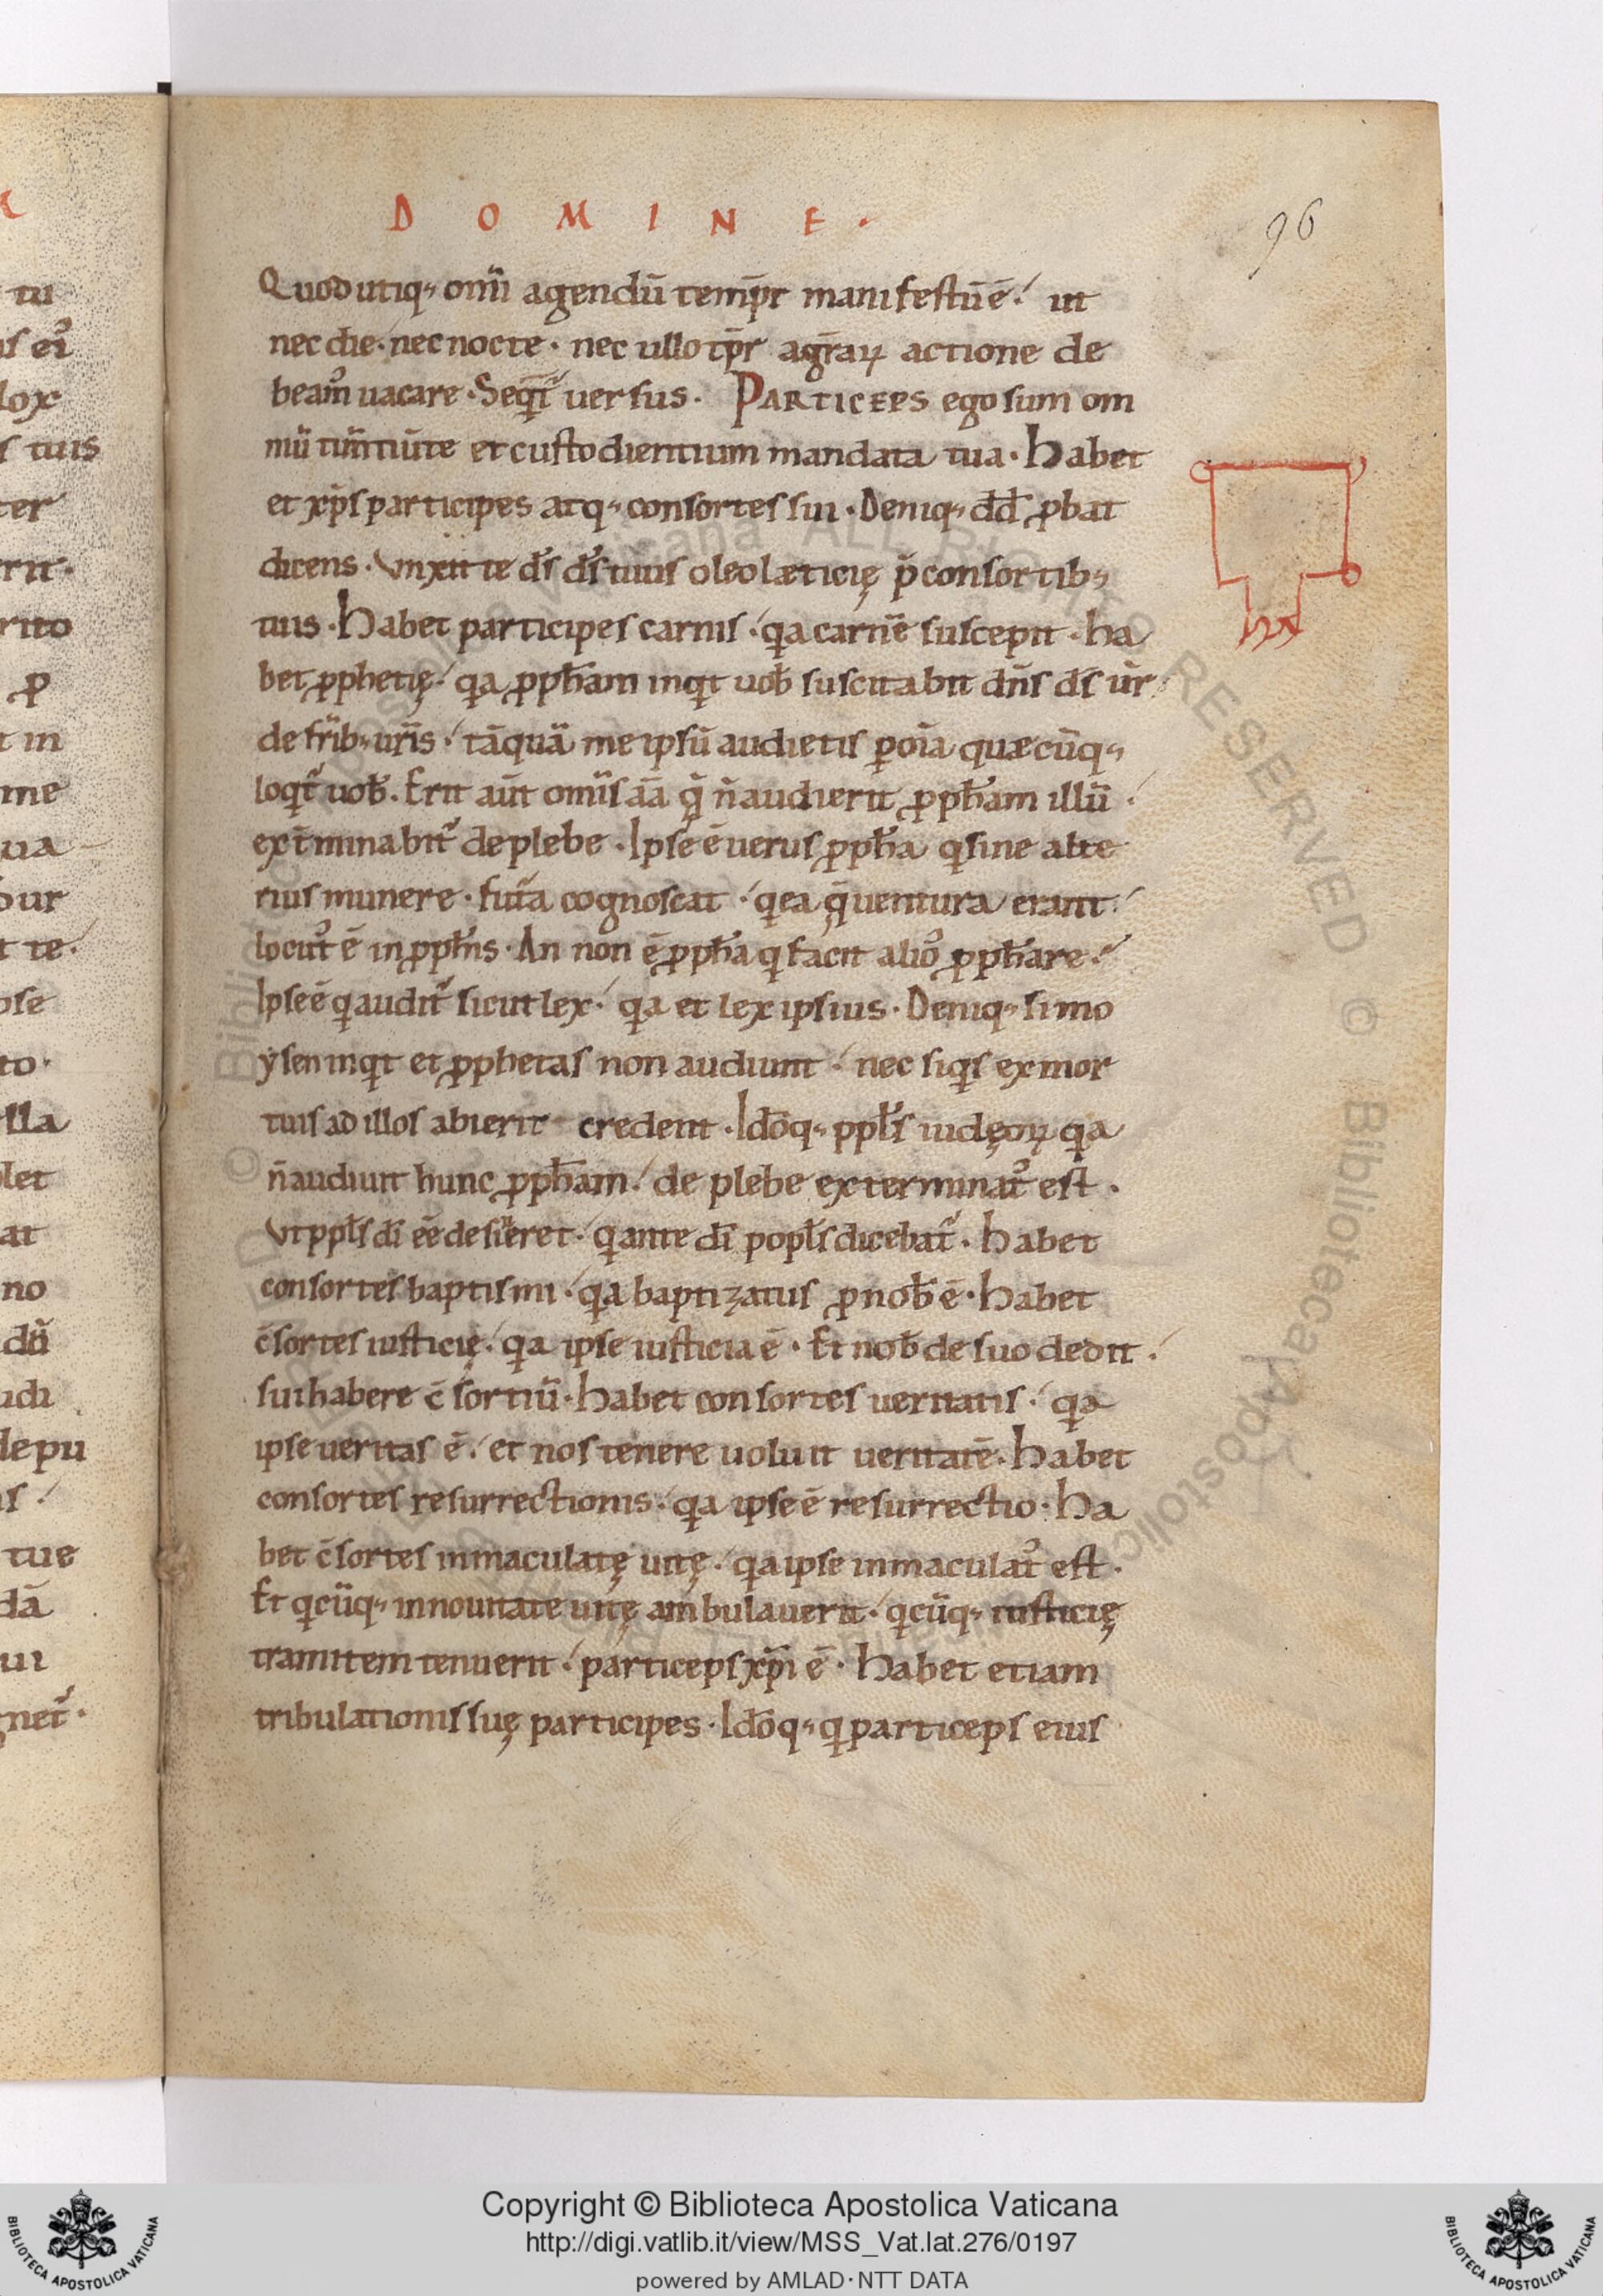 D O M I N E ·
96
Quod utiq; om̄i agendū temp̄r manifestū ē ut
nec die · nec nocte · nec ullo tp̄r agr̄aꝝ actione de
beam᷒ uacare · Seqt̄ uersus · PARTICEPS ego sum om
niū tim̄tiū te et custodientium mandata tua · Habet
et xp̄s participes atq; consortes sui · Deniq; dd̄ ꝓbat
dicens · Vnxit te d̄s d̄s tuus oleo læticię p̄ consortib;
tuis · Habet participes carnis · qa carnē suscepit · ha
bet ꝓphetię · qa ꝓph̄am inqt uob̄ suscitabit dn̄s d̄s ur̄
de fr̄ib; ur̄is · tāquā me ipsū audietis ꝑ oīa quæcūq;
loqt̄ uob̄ · Erit aūt om̄is aīa q̄ n̄ audierit ꝓph̄am illū ·
ext̄minabit᷒ de plebe · Ipse ē uerus ꝓph̄a q sine alte
rius munere · fut̄a cognoscat · q ea q̄ uentura erant
locut᷒ ē in ꝓph̄is · An non ē ꝓph̄a q facit alio᷒ ꝓph̄are ·
Ipse ē q audit᷒ sicut lex · qa et lex ipsius · Deniq; si mo
ysen inqt et ꝓphetas non audiunt · nec siqs ex mor
tuis ad illos abierit credent · Idōq; ppl̄s iudęoꝝ qa
n̄ audiuit hunc ꝓph̄am · de plebe exterminat᷒ est ·
Vt ppl̄s dī eē desieret · q ante dī popl̄s dicebat᷒ · Habet
consortes baptismi · qa baptizatus ꝓ nob̄ ē · Habet
c̄sortes iusticię · qa ipse iusticia ē · Et nob̄ de suo dedit ·
sui habere c̄sortiū · Habet consortes ueritatis · qa
ipse ueritas ē · et nos tenere uoluit ueritatē · Habet
consortes resurrectionis · qa ipse ē resurrectio · Ha
bet c̄sortes inmaculatę uitę · qa ipse inmaculat᷒ est ·
Et qcūq; in nouitate uitę ambulauerit · qcūq; iusticię
tramitem tenuerit · particeps xp̄i ē · Habet etiam
tribulationis suę participes · Idōq; q particeps eius
tu
lox
tuis
ter
rito
ꝓ
t in
me
ua
ur
t te ·
to ·
lla
let
at
no
udi
depu
tue
dā
ui
net᷒ ·
Copyright © Biblioteca Apostolica Vaticana
http://digi.vatlib.it/view/MSS_Vat.lat.276/0197
powered by AMLAD · NTT DATA
BIBLIOTECA APOSTOLICA VATICANA
BIBLIOTECA APOSTOLICA VATICANA